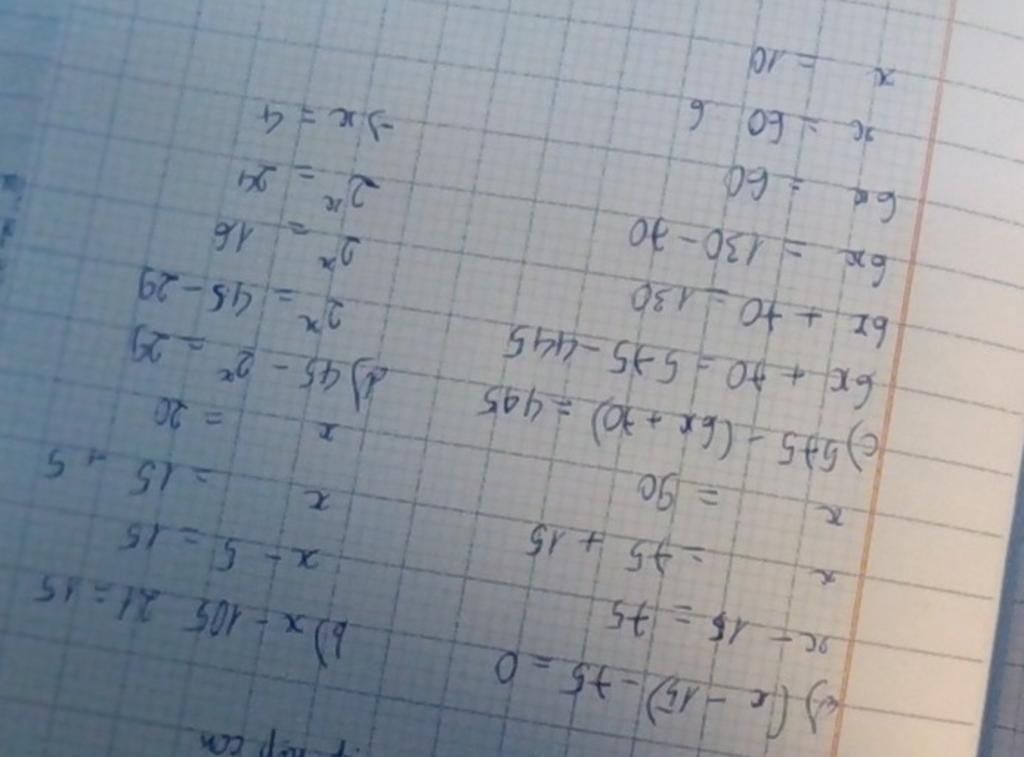 p hợp con
a) (x - 15) - 75 = 0
x - 15 = 75
x = 75 + 15
x = 90
c) 575 - (6x + 70) = 445
6x + 70 = 575 - 445
6x + 70 = 130
6x = 130 - 70
6x = 60
x = 60 6
x = 10
b) x - 105 21 = 15
x - 5 = 15
x = 15 + 5
x = 20
d) 45 - 2ˣ = 29
2ˣ = 45 - 29
2ˣ = 16
2ˣ = 24
→ x = 4